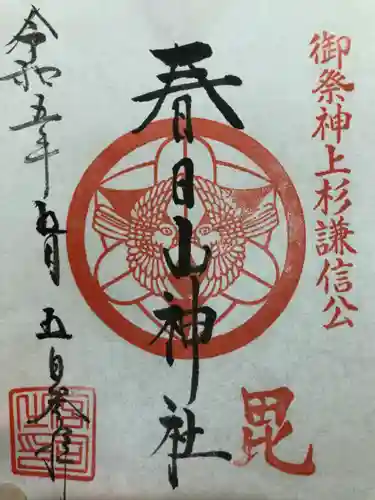 御祭神上杉謙信公
毘
春日山神社
令和五年五月五日奉拝